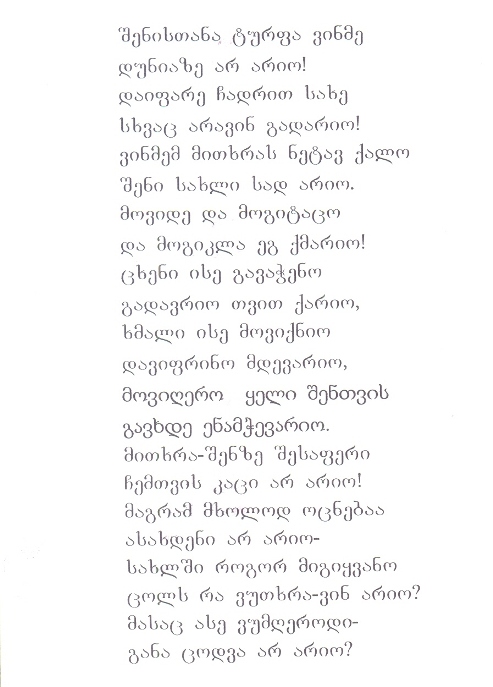 შენისთანა ტურფა ვინმე
დუნიაზე არ არიო!
დაიფარე ჩადრით სახე
სხვაც არავინ გადარიო!
ვინმემ მითხრას ნეტავ ქალო
შენი სახლი სად არიო.
მოვიდე და მოგიტაცო
და მოგიკლა ეგ ქმარიო!
ცხენი ისე გავაჭენო
გადავრიო თვით ქარიო,
ხმალი ისე მოვიქნიო
დავიფრინო მდევარიო,
მოვიღერო ყელი შენთვის
გავხდე ენამჭევარიო.
მითხრა-შენზე შესაფერი
ჩემთვის კაცი არ არიო!
მაგრამ მხოლოდ ოცნებაა
ასახდენი არ არიო-
სახლში როგორ მიგიყვანო
ცოლს რა ვუთხრა-ვინ არიო?
მასაც ასე ვუმღეროდი-
განა ცოდვა არ არიო?